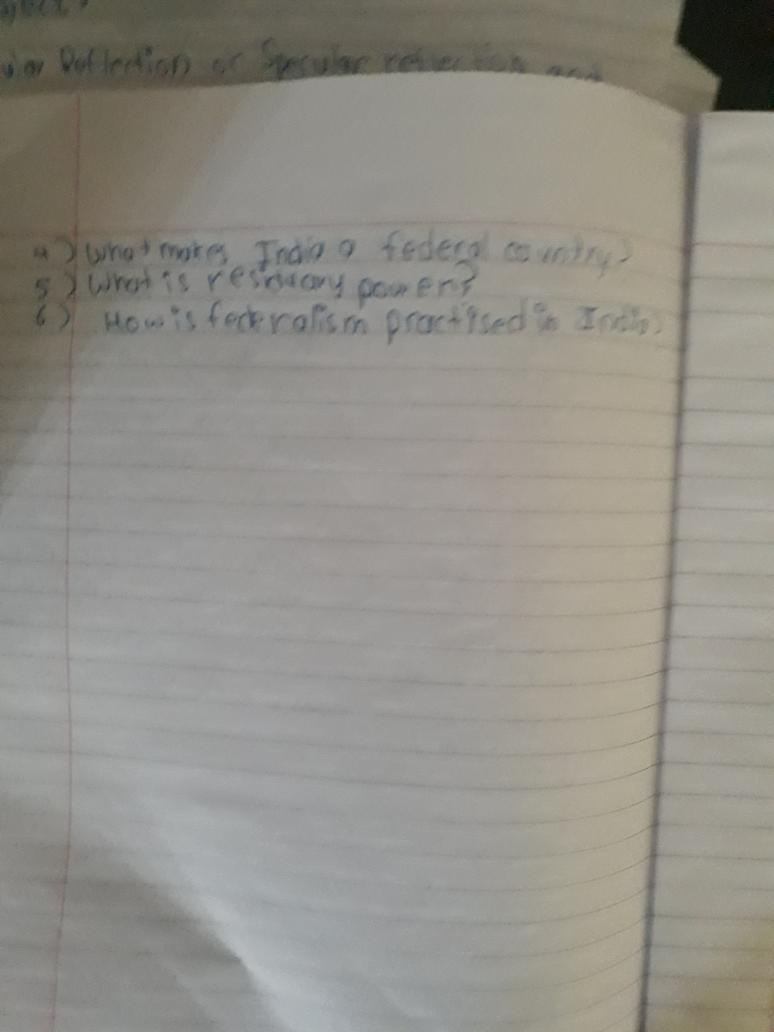 Reflection or Specular reflection and
4) What makes India a federal country?
5) What is residuary powers?
6) How is federalism practised in India?